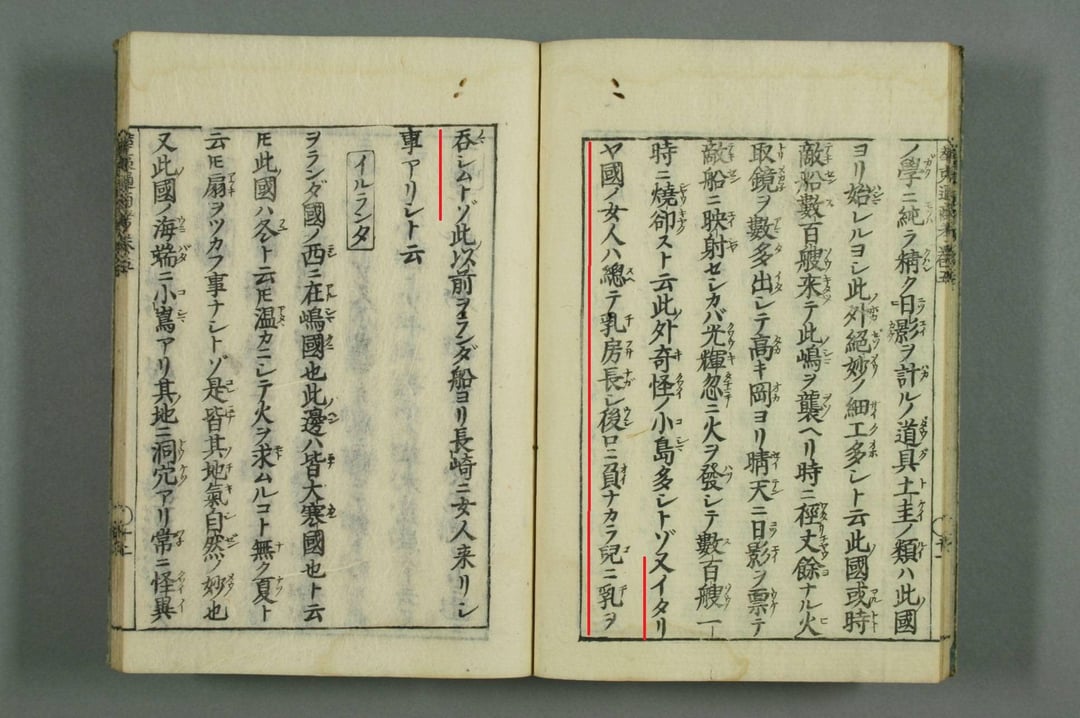 ノ學ニ純ラ精ク日影ヲ計ルノ道具土圭ノ類ハ此國
ヨリ始レルヨシ此外絕妙ノ細工多シト云此國或時
敵船數百艘来テ此嶋ヲ襲ヘリ時ニ徑丈餘ナル火
取鏡ヲ數多出シテ高キ岡ヨリ晴天ニ日影ヲ票テ
敵船ニ映射セシカバ光輝忽ニ火ヲ發シテ數百艘一
時ニ燒却スト云此外奇怪ノ小島多シトゾ又イタリ
ヤ國ノ女人ハ總テ乳房長シ後ロニ負ナカラ兒ニ乳ヲ
呑シムトゾ此以前ヲランダ船ヨリ長崎ニ女人来リシ
事アリシト云
イルランタ
ヲランダ國ノ西ニ在嶋國也此邊ハ皆大寒國也ト云
𪜈此國ハ冬ト云𪜈温カニシテ火ヲ求ムルコト無ク夏ト
云𪜈扇ヲツカフ事ナシトゾ是皆其地氣自然ノ妙也
又此國ノ海端ニ小嶌アリ其地ニ洞穴アリ常ニ怪異